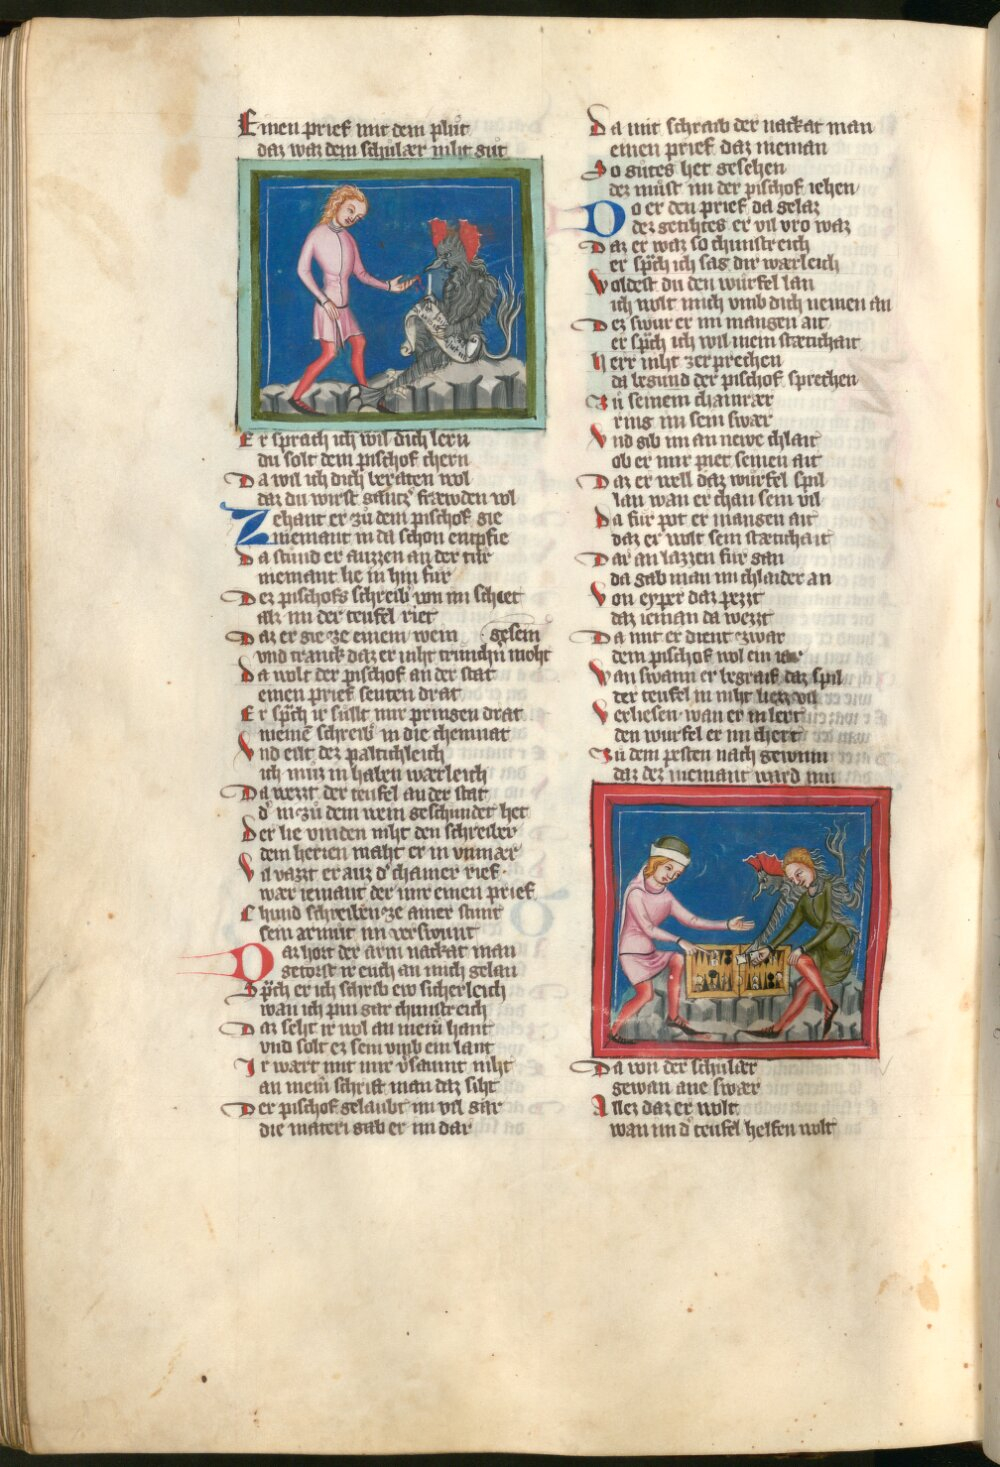 Einen prief mit dem plůt
daz waz dem schůlær niht gůt
Er sprach ich wil dich lern
du solt dem pischof chern
Da wil ich dich beraten wol
daz du wirst gantzʼ fræwden vol
Zehant er zů dem pischof gie
niemant in da schon enpfie
Da stůnd er auzzen an der tür
niemant lie in hin für
Dez pischofs schreib von im schiet
alz im der teufel riet
Daz er gie ze einem wein gesein
vnd tranck daz er niht trinchn moht
Da wolt der pischof an der stat
einen prief senten drat
Er spͣch ir sůllt mir pringen drat
meinē schreib in die chemnat
Vnd eilt dez paltichleich
ich můz in haben wærleich
Da wezzt der teufel an der stat
dʼ in zů dem wein geschundet het
Der lie vinden niht den schreiber
dem herren maht er in vnmær
Vil vazzt er auz dʼ chamer rief
wær iemant der mir einen prief
Chund schreiben ze ainer stunt
sein armůt im verswunt
Daz hort der arm nackat man
getorst ir euch an mich gelan
Spͣch er ich schrib ew sicherleich
wan ich pin gar chunstreich
Daz seht ir wol an meinʼ hant
vnd solt ez sein vmb ein lant
Ir wært mit mir vʼsaumt niht
an meinʼ schrift man daz siht
Der pischof gelaubt im vil gar
die materi gab er im dar
Da mit schraib der nackat man
einen prief daz nieman
So gůtes het gesehen
dez můst im der pischof iehen
Do er den prief da gelaz
dez getihtes er vil vro waz
Daz er waz so chunstreich
er spͣch ich sag dir wærleich
Woldest du den würfel lan
ich wolt mich vmb dich nemen an
Dez swur er im mangen ait
er spͣch ich wil mein stætichait
Herr niht zerprechen
da begund der pischof sprechen
Zů seinem chamrær
ring im sein swær
Vnd gib im an newe chlait
ob er mir piet seinen ait
Daz er well daz würfel spil
lan wan er chan sein vil
Da für pot er mangen ait
daz er wolt sein stætichait
Dar an lazzen für gan
da gab man im chlaider an
Von eyper daz pezzt
daz ieman da wezzt
Da mit er dient zwar
dem pischof wol ein iar
Wan swann er begraif daz spil
der teufel in niht liezz vil
Verliesen wan er in lert
den wurfel er im chert
Zů dem pesten nach gewinn
daz dez niemant ward inn
Da von der schůlær
gewan ane swær
Allez daz er wolt
wan im dʼ teufel helfen wolt